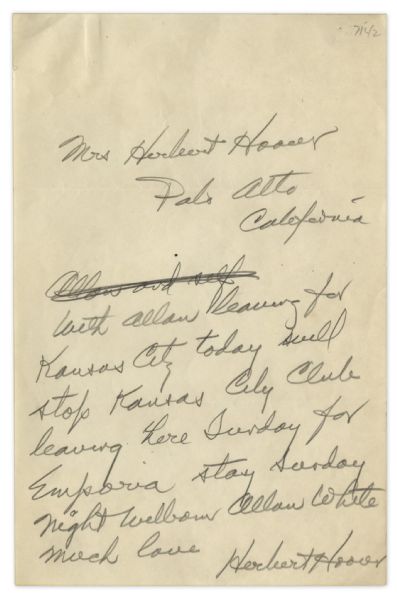 Mrs Herbert Hoover
Palo Alto
California
Allan and self
with Allan leaving for
Kansas City today will
stop Kansas City Club
leaving here Sunday for
Emporia stay Sunday
night William Allan White
much love
Herbert Hoover